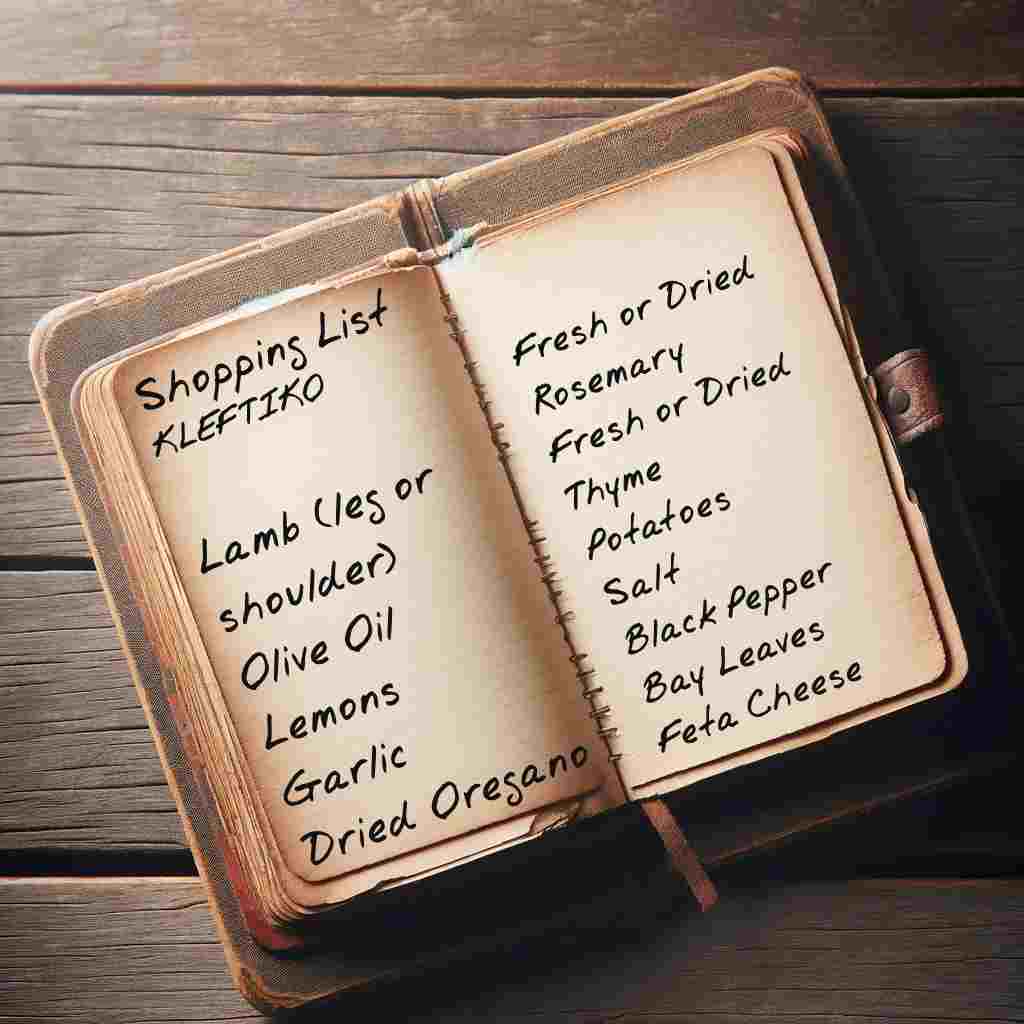 Shopping List
KLEFTIKO
Lamb (leg or
shoulder)
Olive Oil
Lemons
Garlic
Dried Oregano
Fresh or Dried
Rosemary
Fresh or Dried
Thyme
Potatoes
Salt
Black Pepper
Bay Leaves
Feta Cheese